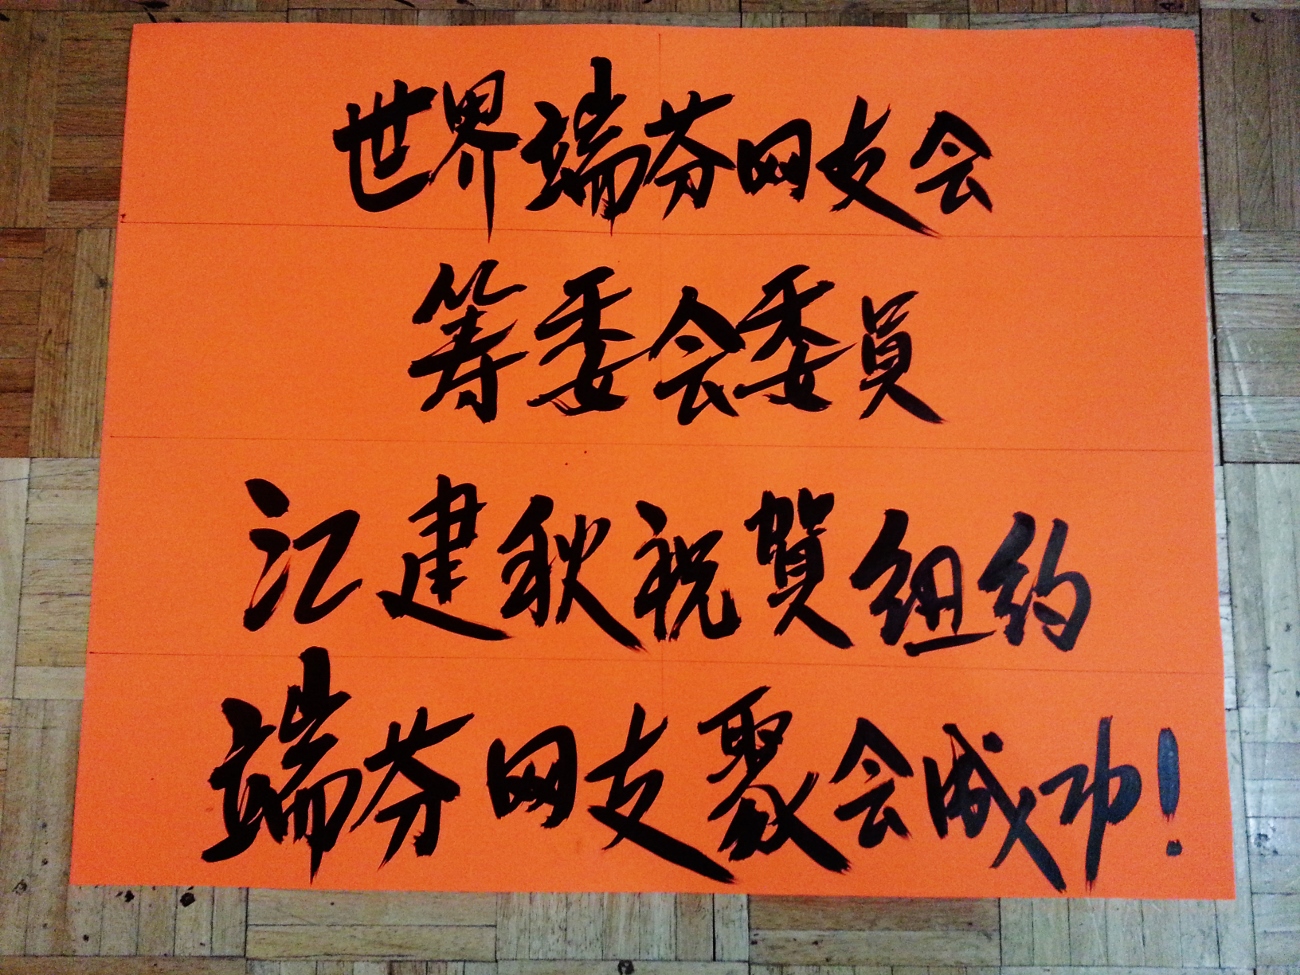 世界端芬网友会
筹委会委員
江建秋祝賀纽约
端芬网友聚会成功!